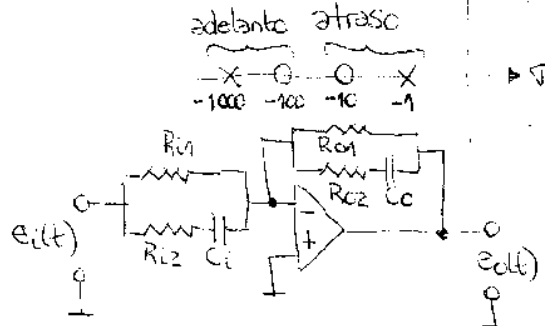 adelanto atraso
-1000 -100 -10 -1 σ
Ri1
Ro1
Ro2 Co
Ri2 Ci
ei(t)
-
+
eo(t)